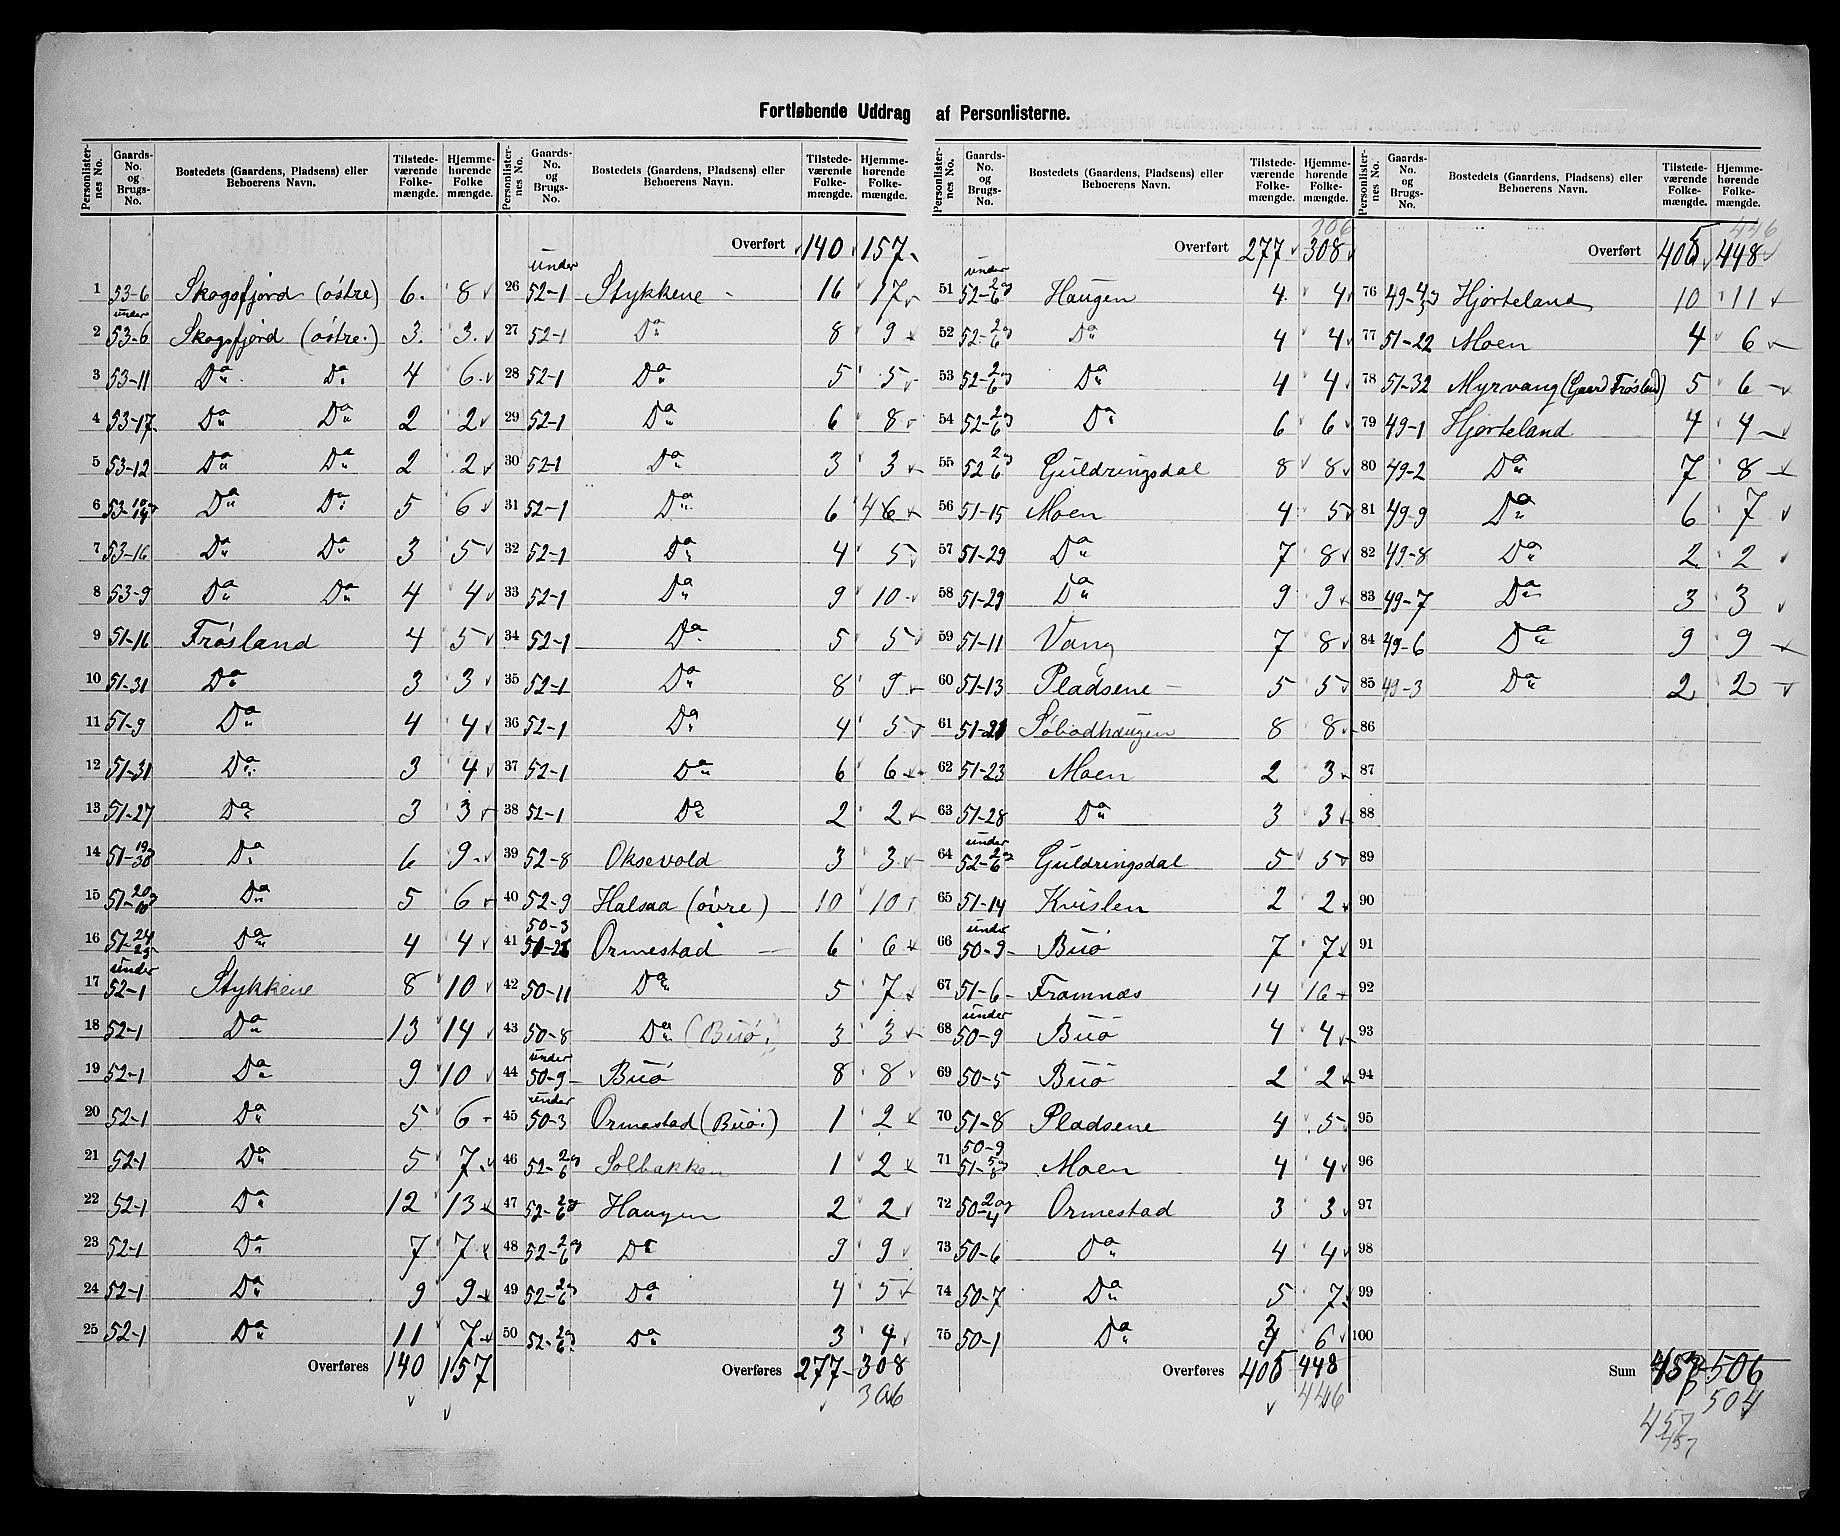 Fortløbende Uddrag af Personlisterne.
Personlister-nes No. Gaards-No. og Brugs-No. Bostedets (Gaardens, Pladsens) eller Beboerens Navn. Tilstede-værende Folke-mængde. Hjemme-hørende Folke-mængde.
1 53-6 Skogsfjord (østre) 6. 8
2 under 53-6 Skogsfjord (østre.) 3. 3.
3 53-11 Do Do 4 6
4 53-17 Do Do 2 2
5 53-12 Do Do 2 2
6 53-10 og 14 Do Do 5 6
7 53-16 Do Do 3 5
8 53-9 Do Do 4 4
9 51-16 Frøsland 4 5
10 51-31 Do 3 3
11 51-9 Do 4 4
12 51-31 Do 3 4
13 51-27 Do 3 3
14 51-19 og 30 Do 6 9
15 51-20 og 10 Do 5 6
16 51-24 25 Do 4 4
17 under 52-1 Stykkene 8 10
18 52-1 Do 13 14
19 52-1 Do 9 10
20 52-1 Do 5 6
21 52-1 Do 5 7
22 52-1 Do 12 13
23 52-1 Do 7 7
24 52-1 Do 9 9
25 52-1 Do 11 7
Overføres 140 157
Personlister-nes No. Gaards-No. og Brugs-No. Bostedets (Gaardens, Pladsens) eller Beboerens Navn. Tilstede-værende Folke-mængde. Hjemme-hørende Folke-mængde.
Overført 140 157
26 under 52-1 Stykkene 16 17
27 52-1 Do 8 9
28 52-1 Do 5 5
29 52-1 Do 6 8
30 52-1 Do 3 3
31 52-1 Do 6 6
32 52-1 Do 4 5
33 52-1 Do 9 10
34 52-1 Do 5 5
35 52-1 Do 8 9
36 52-1 Do 4 5
37 52-1 Do 6 6
38 52-1 Do 2 2
39 52-8 Oksevold 3 3
40 52-9 Halsaa (øvre) 10 10
41 50-3 Ormestad 6 6
42 50-11 Do 5 7
43 50-8 Do (Buø.) 3 3
44 under 50-9 Buø 8 8
45 under 50-3 Ormestad (Buø.) 1 2
46 52-2 og 6 Solbakken 1 2
47 52-2 og 6 Haugen 2 2
48 52-2 og 6 Do 9 9
49 52-2 og 6 Do 4 5
50 52-2 og 6 Do 3 4
Overføres 277 308
306
Personlister-nes No. Gaards-No. og Brugs-No. Bostedets (Gaardens, Pladsens) eller Beboerens Navn. Tilstede-værende Folke-mængde. Hjemme-hørende Folke-mængde.
306
Overført 277 308
51 under 52-2 og 6 Haugen 4 4
52 52-2 og 6 Do 4 4
53 52-2 og 6 Do 4 4
54 52-2 og 6 Do 6 6
55 52 2 og 6 Guldringsdal 8 8
56 51-15 Moen 4 5
57 51-29 Do 7 8
58 51-29 Do 9 9
59 51-11 Vang 7 8
60 51-13 Pladsene 5 5
61 51-21 Søbodhaugen 8 8
62 51-23 Moen 2 3
63 51-28 Do 3 3
64 under 52-2 og 6 Guldringsdal 5 5
65 51-14 Kvislen 2 2
66 under 50-9 Buø 7 7
67 51-6 Framnæs 14 16
68 under 50-9 Buø 4 4
69 50-5 Buø 2 2
70 51-8 Pladsene 4 5
71 50-9 51-5 og 8 Moen 4 4
72 50-2 og 4 Ormestad 3 3
73 50-6 Do 4 4
74 50-7 Do 5 7
75 50-1 Do 6
Overføres 405 448
446
Personlister-nes No. Gaards-No. og Brugs-No. Bostedets (Gaardens, Pladsens) eller Beboerens Navn. Tilstede-værende Folke-mængde. Hjemme-hørende Folke-mængde.
446
Overført 405 448
76 49-4 og 3 Hjorteland 10 11
77 51-22 Moen 4 6
78 51-32 Myrvang (Gaard Frøsland) 5 6
79 49-1 Hjorteland 4 4
80 49-2 Do 7 8
81 49-9 Do 6 7
82 49-8 Do 2 2
83 49-7 Do 3 3
84 49-6 Do 9 9
85 49-3 Do 2 2
86
87
88
89
90
91
92
93
94
95
96
97
98
99
100
Sum 457 506
504
457
457